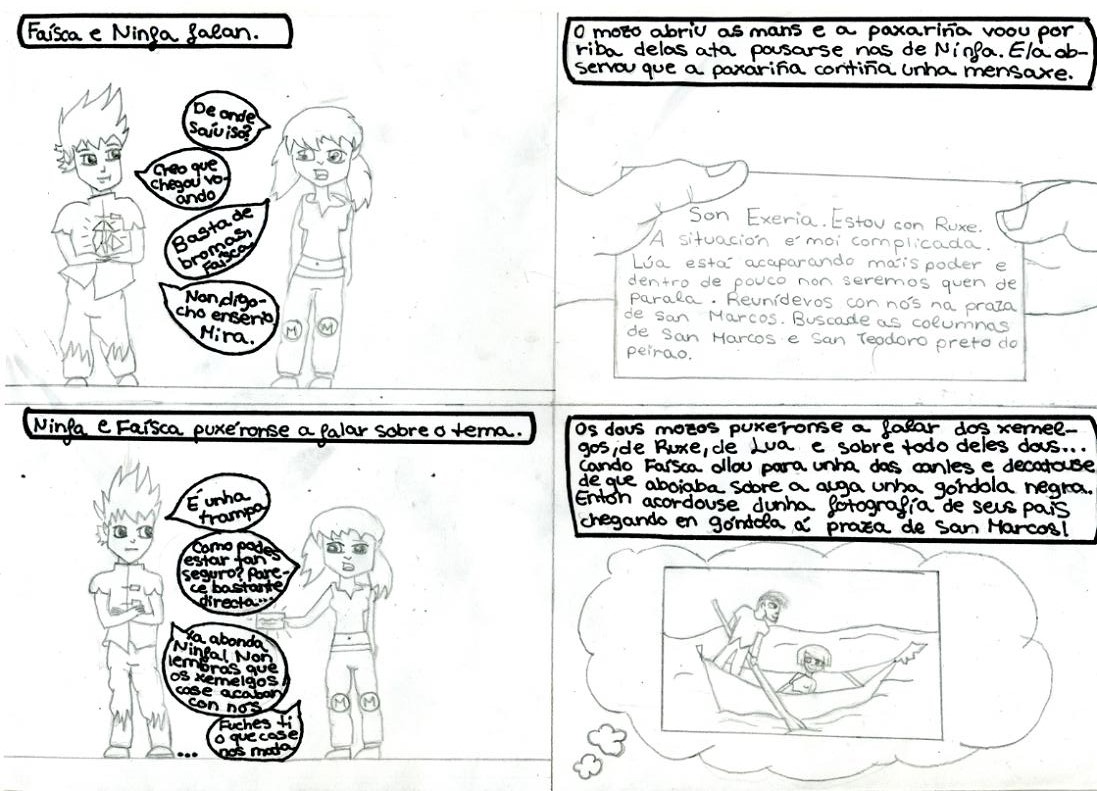 Faísca e Ninfa falan.
De onde
saíu iso?
Creo que
chegou vo-
ando
Basta de
bromas,
Faísca
Non, digo-
cho enserio
Mira.
M M
O mozo abriu as mans e a paxariña voou por
riba delas ata pousarse nas de Ninfa. Ela ob-
servou que a paxariña contiña unha mensaxe.
Son Exeria. Estou con Ruxe.
A situación é moi complicada.
Lúa está acaparando máis poder e
dentro de pouco non seremos quen de
parala. Reunídevos con nós na praza
de San Marcos. Buscade as columnas
de San Marcos e San Teodoro preto do
peirao.
Ninfa e Faísca puxéronse a falar sobre o tema..
É unha
trampa
Como podes
estar tan
seguro? Pare-
ce bastante
directa...
Xa abonda
Ninfa! Non
lembras que
os xemelgos
case acaban
con nós
Fuches ti
o que case
nos mata
...
M M
Os dous mozos puxéronse a falar dos xemel-
gos, de Ruxe, de Lua e sobre todo deles dous...
Cando Faísca ollou para unha das canles e decatouse
de que aboiaba sobre a auga unha góndola negra.
Entón acordouse dunha fotografía de seus pais
chegando en góndola á praza de San Marcos!